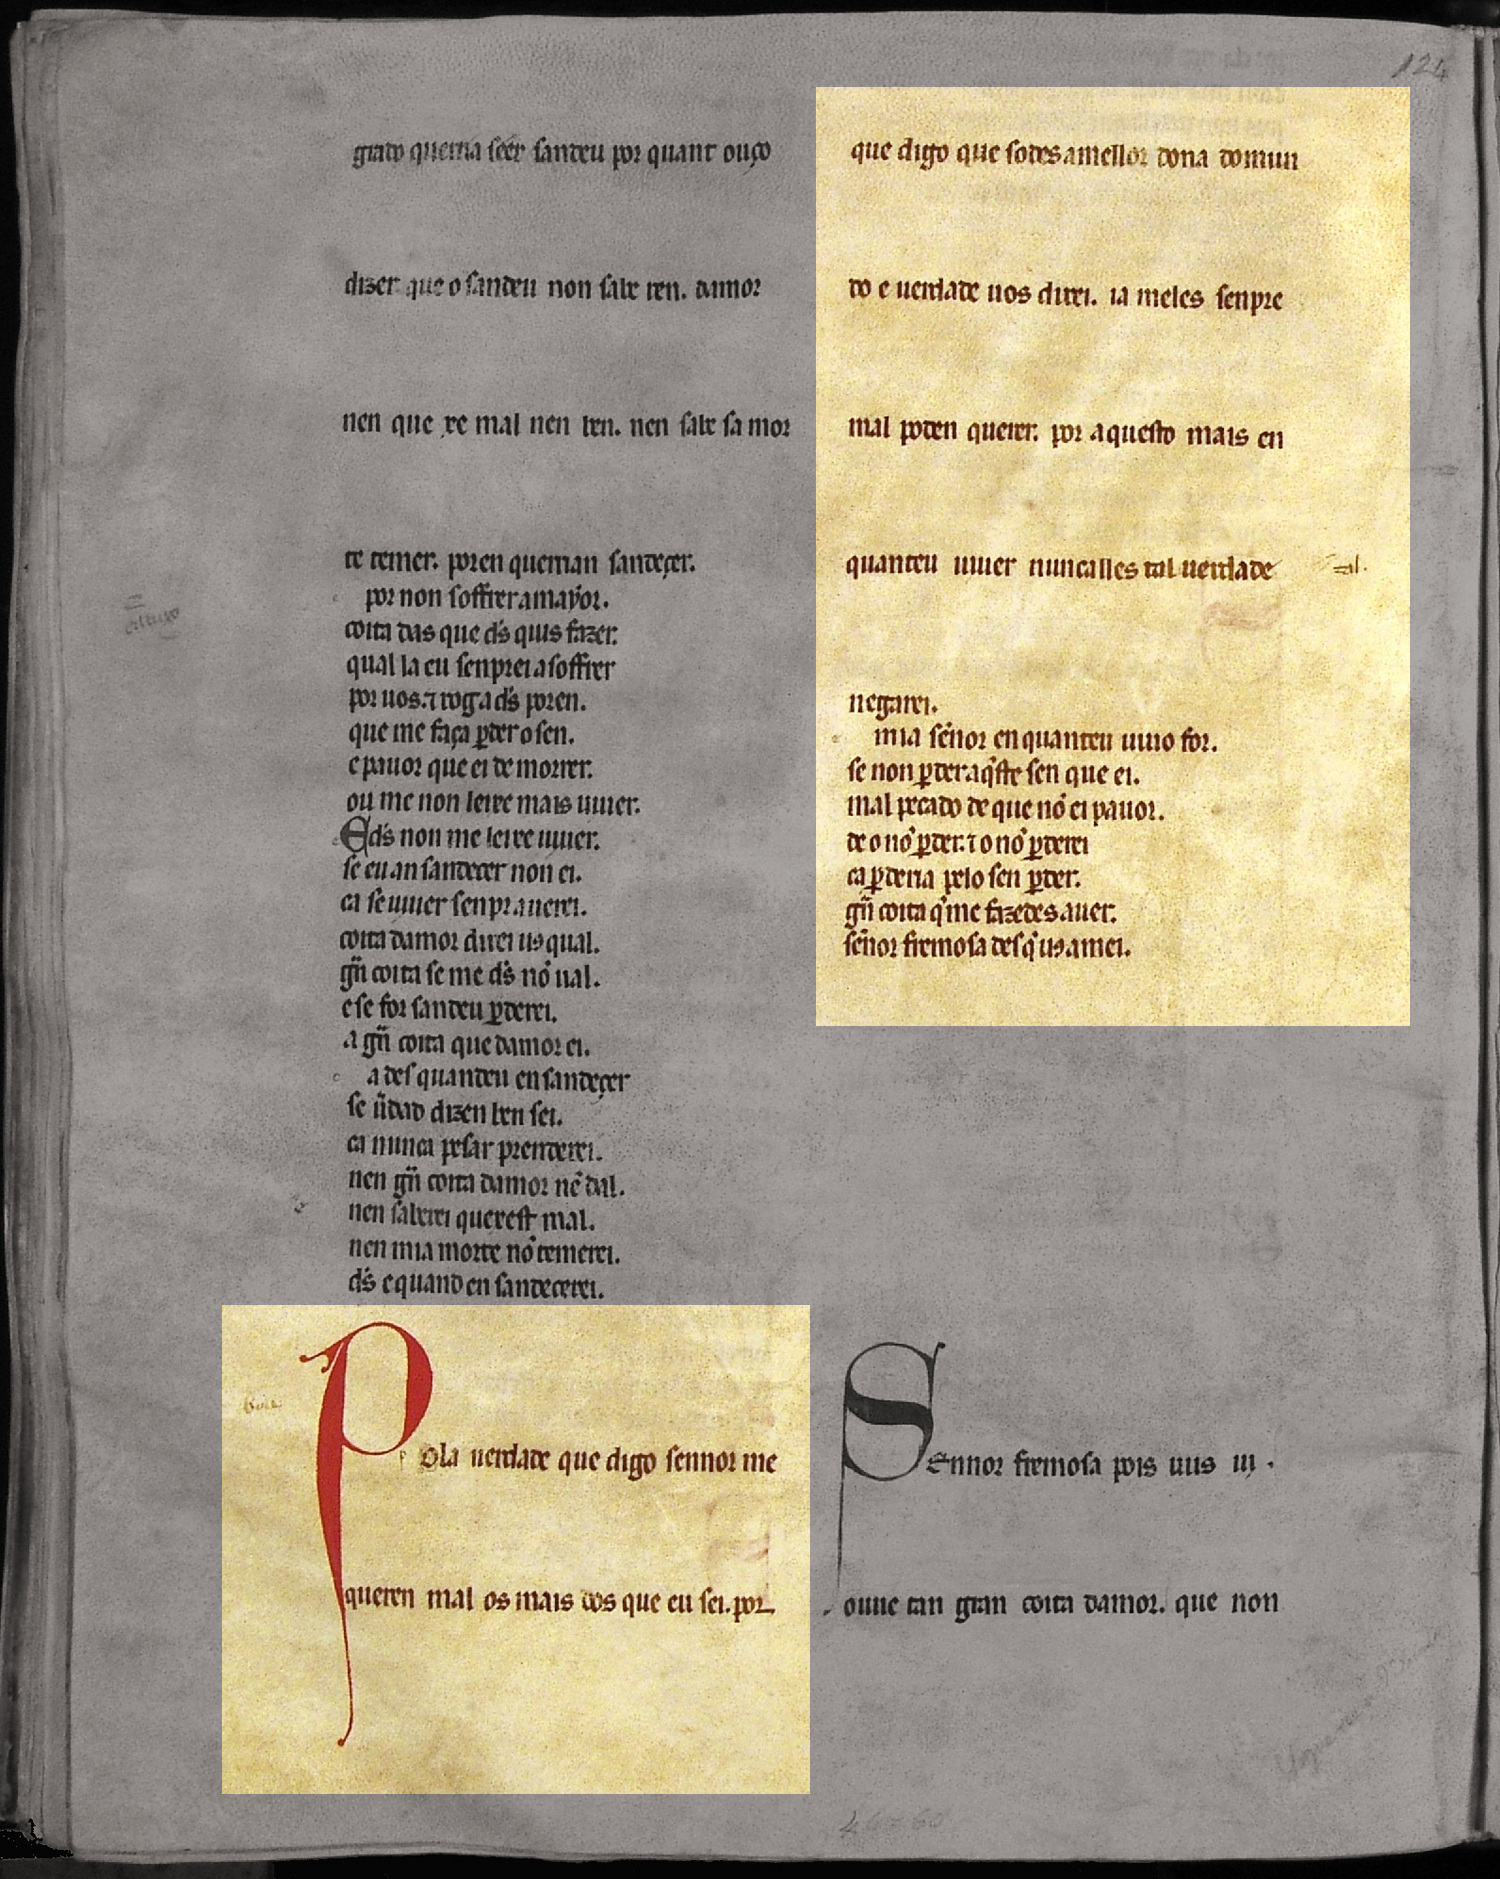 124
grado querria séér sandeu por quant ouço
dizer que o sandeu non sabe ren. damor
nen que xe mal nen ben. nen sabe sa mor
te temer. poren querrian sandeçer.
por non soffrer a mayor.
coita das que d̄s quis fazer.
qual la eu senprei a soffrer
por uos. ⁊ rog a d̄s poren.
que me faça ꝑder o sen.
e pauor que ei de morrer.
ou me non leixe mais uiuer.
E d̄s non me leixe uiuer.
se eu an sandecer non ei.
ca se uiuer senpr auerei.
coita damor direi uꝯ qual.
gn̄ coita se me d̄s nō ual.
e se for sandeu ꝑderei.
a gn̄ coita que damor ei.
a des quanteu en sandeçer
se u̅dad dizen ben sei.
ca nunca pesar prenderei.
nen gn̄ coita damor nē dal.
nen saberei que xest mal.
nen mia morte nō temerei.
d̄s e quand en sandecerei.
Pola uerdade que digo sennor me
queren mal os mais dos que eu sei. por
que digo que sodes a mellor dona do mun
do e uerdade uos direi. ia meles senpre
mal poden querer. por aquesto mais en
quanteu uiuer nunca lles tal uerdade
al.
negarei.
mia sēnor en quanteu uiuo for.
se non ꝑder aq̄ste sen que ei.
mal pecado de que nō ei pauor.
de o nō ꝑder. ⁊ o nō ꝑderei
ca ꝑderia pelo sen ꝑder.
gn̄ coita q̄ me fazedes auer.
sēnor fremosa des q̄ uꝯ amei.
Sennor fremosa pois uus ui.
ouue tan gran coita damor. que non